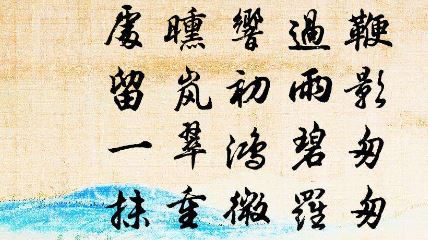 鞭影匆匆
過雨碧羅
響初鴻微
曛岚翠重
處留一抹